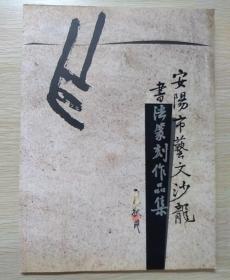 安陽市藝文沙龍
書法篆刻作品集